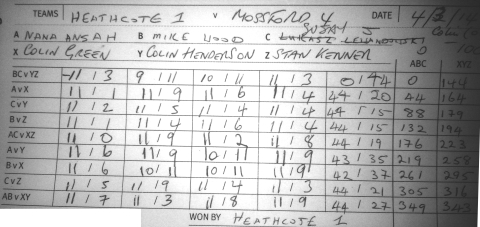 TEAMS HEATHCOTE 1 V MOSSFORD 4 DATE 4/
A NANA ANSAH B MIKE WOOD C SUSAN J
X COLIN GREEN Y COLIN HENDERSON Z STAN KENNER ABC XYZ
BCvYZ 11 / 3 9 / 11 10 / 11 11 / 3 0 / 44 0 144
AvX 11 / 1 11 / 9 11 / 6 11 / 4 44 / 20 44 164
CvY 11 / 2 11 / 5 11 / 4 11 / 4 44 / 15 88 179
BvZ 11 / 1 11 / 4 11 / 6 11 / 4 44 / 15 132 194
ACvXZ 11 / 0 11 / 9 11 / 2 11 / 8 44 / 19 176 223
AvY 11 / 6 11 / 9 10 / 11 11 / 9 43 / 35 219 258
BvX 11 / 6 10 / 11 10 / 11 11 / 9 42 / 37 261 295
CvZ 11 / 5 11 / 9 11 / 4 11 / 3 44 / 21 305 316
ABvXY 11 / 7 11 / 3 11 / 8 11 / 9 44 / 27 349 343
WON BY HEATHCOTE 1